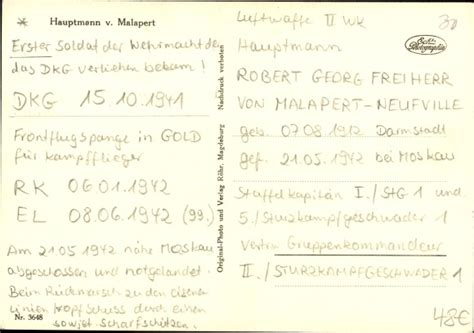 Hauptmann v. Malapert
Erster Soldat der Wehrmacht der
das DKG verliehen bekam!
DKG 15.10.1941
Frontflugspange in GOLD
für Kampfflieger
RK 06.01.1942
EL 08.06.1942 (99.)
Am 21.05.1942 nähe Moskau
abgeschossen und notgelandet.
Beim Rückmarsch zu den eigenen
Linien Kopfschuss durch einen
sowjet. Scharfschützen.
Nr. 3648
Original-Photo und Verlag Röhr, Magdeburg Nachdruck verboten
Luftwaffe II WK
Hauptmann
ROBERT GEORG FREIHERR
VON MALAPERT-NEUFVILLE
geb. 07.08.1912 Darmstadt
gef. 21.05.1942 bei Moskau
Staffelkapitän I./StG 1 und
5./Sturzkampfgeschwader 1
Gruppenkommandeur
II./STURZKAMPFGESCHWADER 1
48€